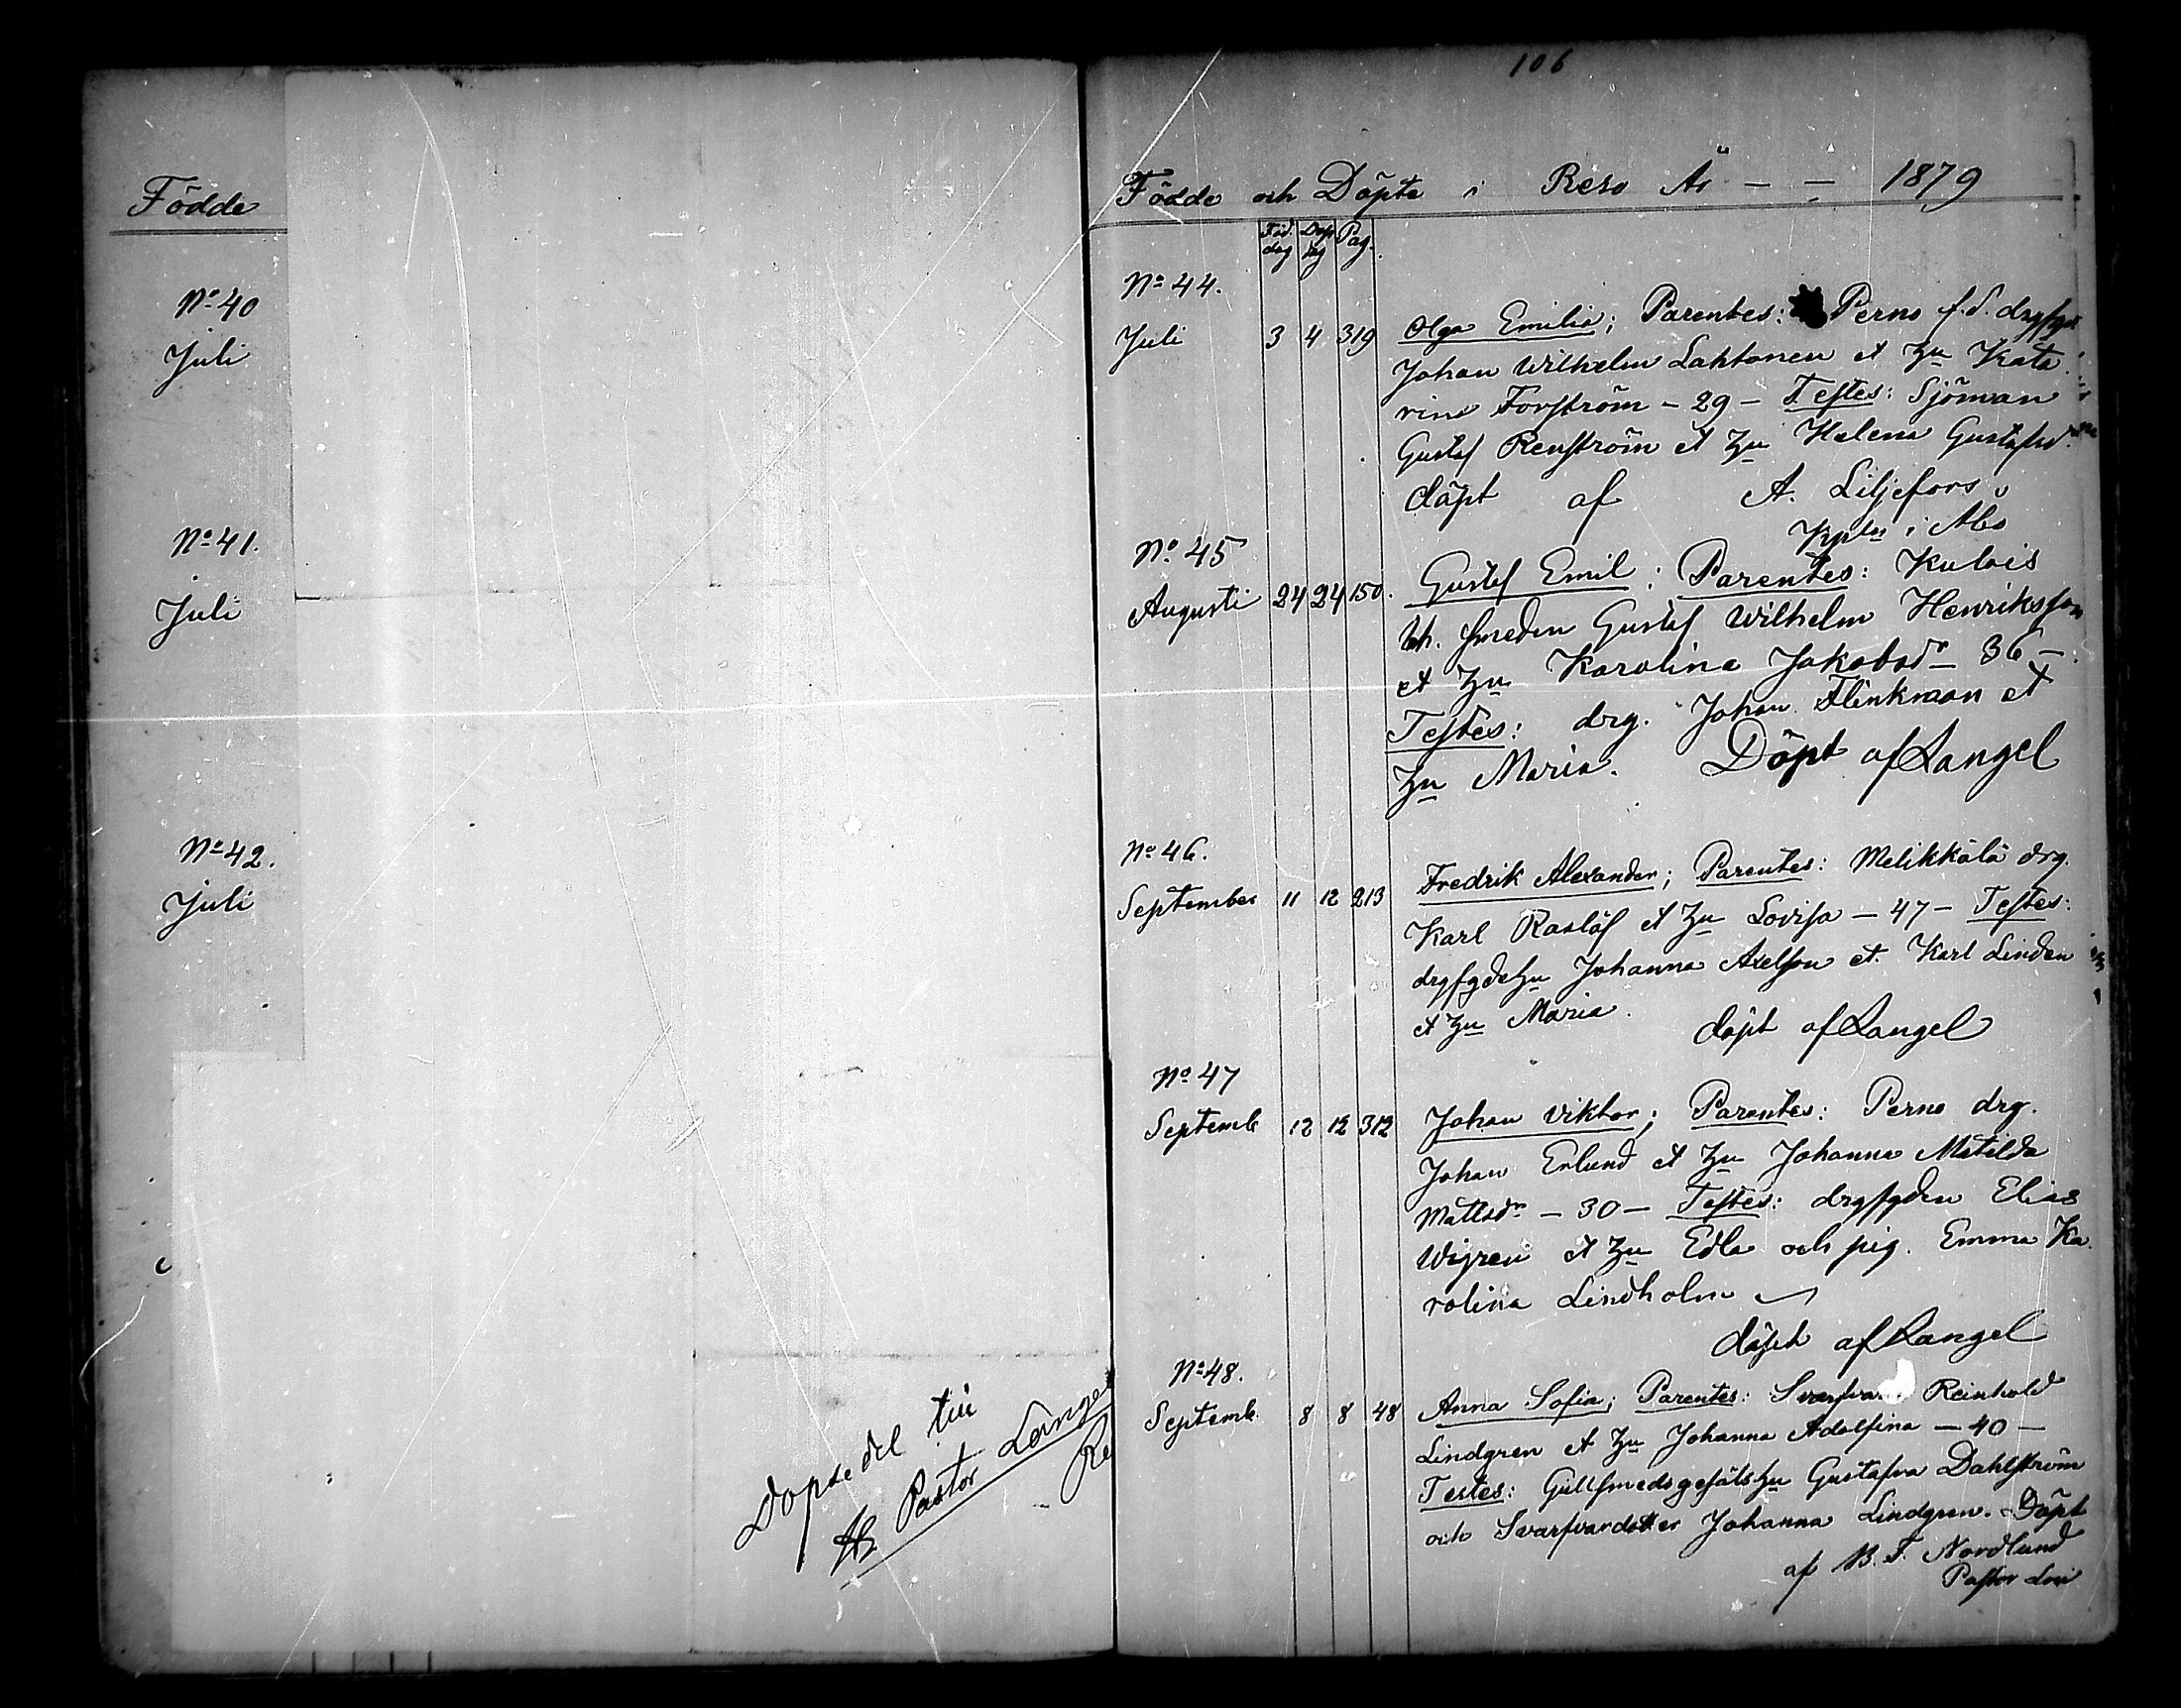 Födde
No 40
Juli
No 41.
Juli
No 42.
Juli
Döpte del till
Hr Pastor Langel
Re
106
Födde och Döpte i Reso År — — 1879
Föd. dag Döp dag Pag.
No 44.
Juli 3 4 319 Olga Emilia; Parentes: Perno f. d. drgfgd
Johan Wilhelm Lahtonen et hu Kata
rina Forström – 29 – Testes: Sjöman
Gustaf Renström et hu Helena Gustafsdr
döpt af A. Liljefors
Kplan i Åbo
No 45
Augusti 24 24 150. Gustaf Emil; Parentes: Kulois
bh. smeden Gustaf Wilhelm Henriksson
et hu Karolina Jakobsdr 36 –
Testes: drg. Johan Flinkman et
hu Maria. Döpt af Langel
No 46.
September 11 12 213 Fredrik Alexander; Parentes: Melikkälä drg.
Karl Raslöf et hu Lovisa – 47 – Testes:
drgfgdehu Johanna Axelsson et. Karl Linden
et hu Maria. döpt af Langel
No 47
Septemb 12 12 312 Johan Viktor; Parentes: Perno drg.
Johan Erlund et hu Johanna Matilda
Mattsdr – 30 – Testes: drgfgden Elias
Wigren et hu Edla och pig. Emma Ka
rolina Lindholm
döpt af Langel
No 48.
Septemb. 8 8 48 Anna Sofia; Parentes: Svarfvar Reinhold
Lindgren et hu Johanna Adolfina – 40 –
Testes: Gullsmedsgesälshu Gustafva Dahlström
och Svarfvardotter Johanna Lindgren. Döpt
af B. F. Nordlund
Pastor